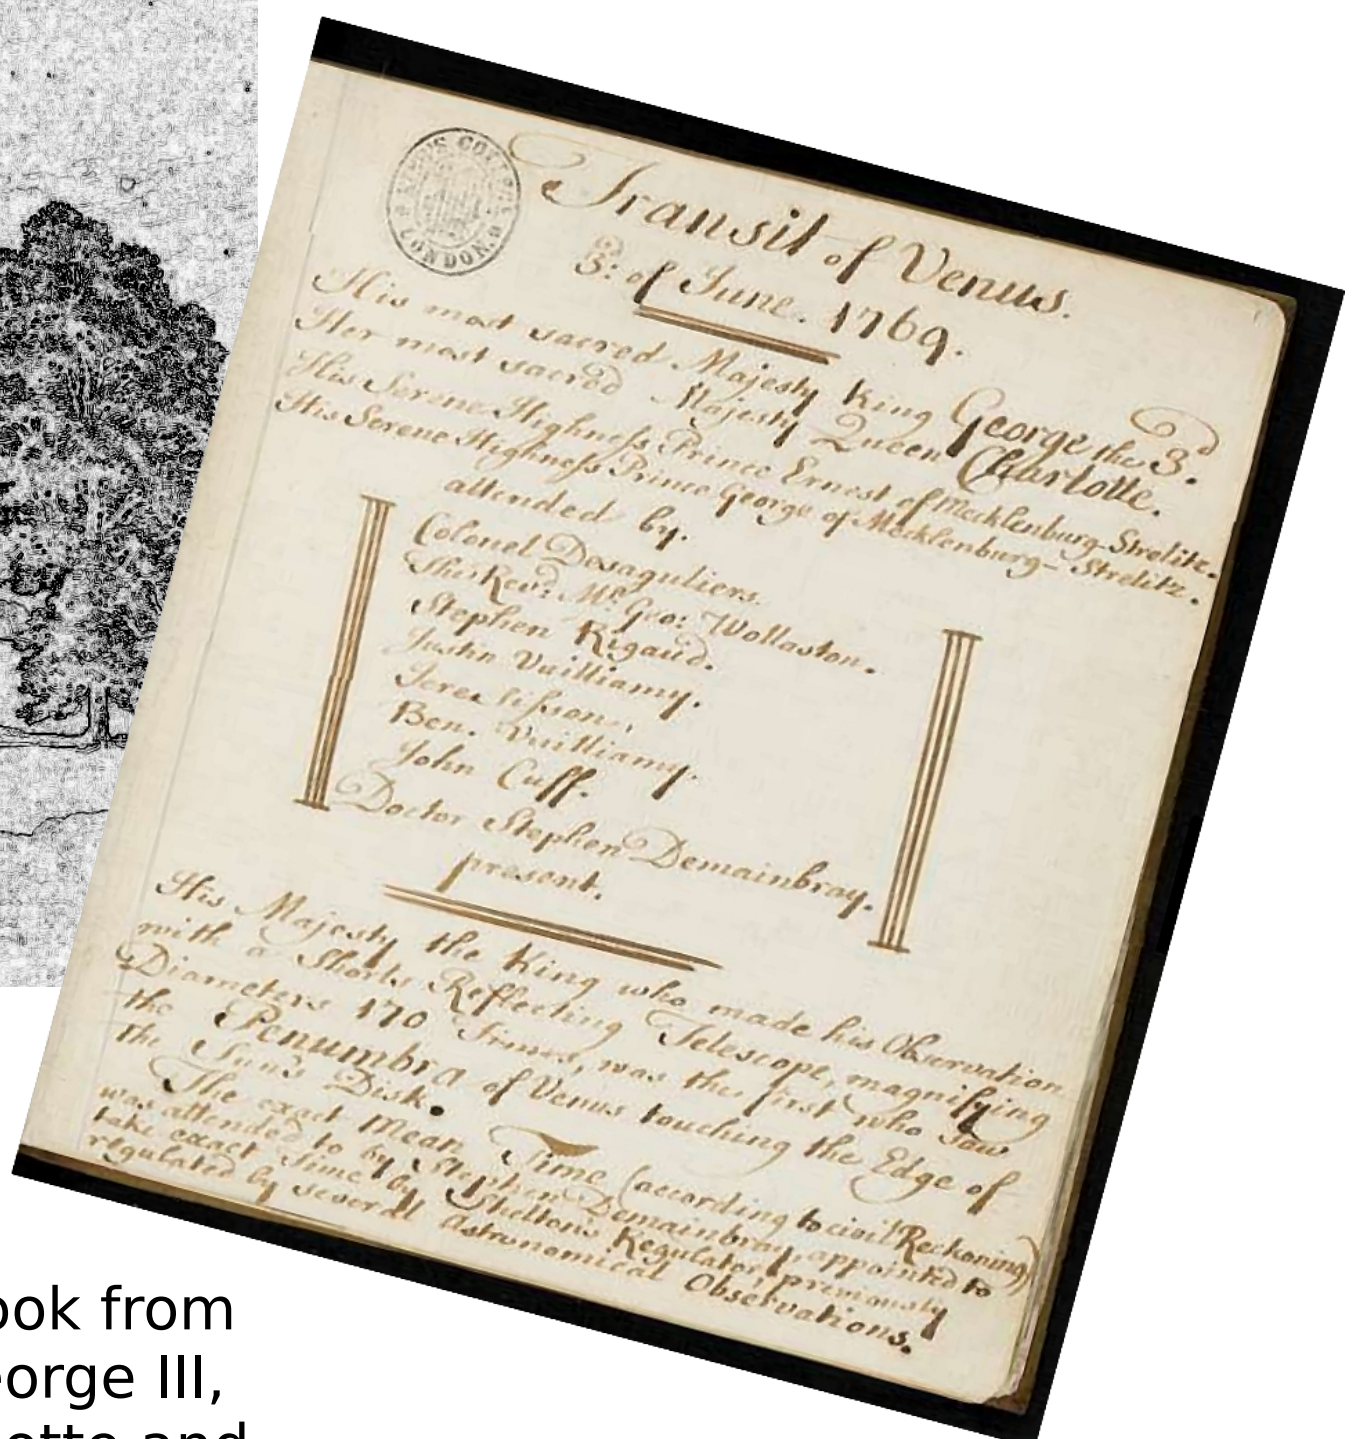 KING'S COLLEGE
LONDON.
Transit of Venus.
3: of June. 1769.
His most sacred Majesty King George the 3.d
Her most sacred Majesty Queen Charlotte.
His Serene Highness Prince Ernest of Mecklenburg-Strelitz.
His Serene Highness Prince George of Mecklenburg-Strelitz.
attended by.
Colonel Desaguliers.
The Revd: Mr. Geo: Wollaston.
Stephen Rigaud.
Justin Vulliamy.
Jere: Sisson.
Ben. Vulliamy.
John Cuff.
Doctor Stephen Demainbray.
present.
His Majesty the King who made his Observation
with a Shorts Reflecting Telescope, magnifying
Diameters 170 Times, was the first who saw
the Penumbra of Venus touching the Edge of
the Sun's Disk.
The exact Mean Time (according to civil Reckoning)
was attended to by Stephen Demainbray, appointed to
take exact time by Shelton's Regulator, previously
regulated by several Astronomical Observations.
ook from
eorge III,
otte and